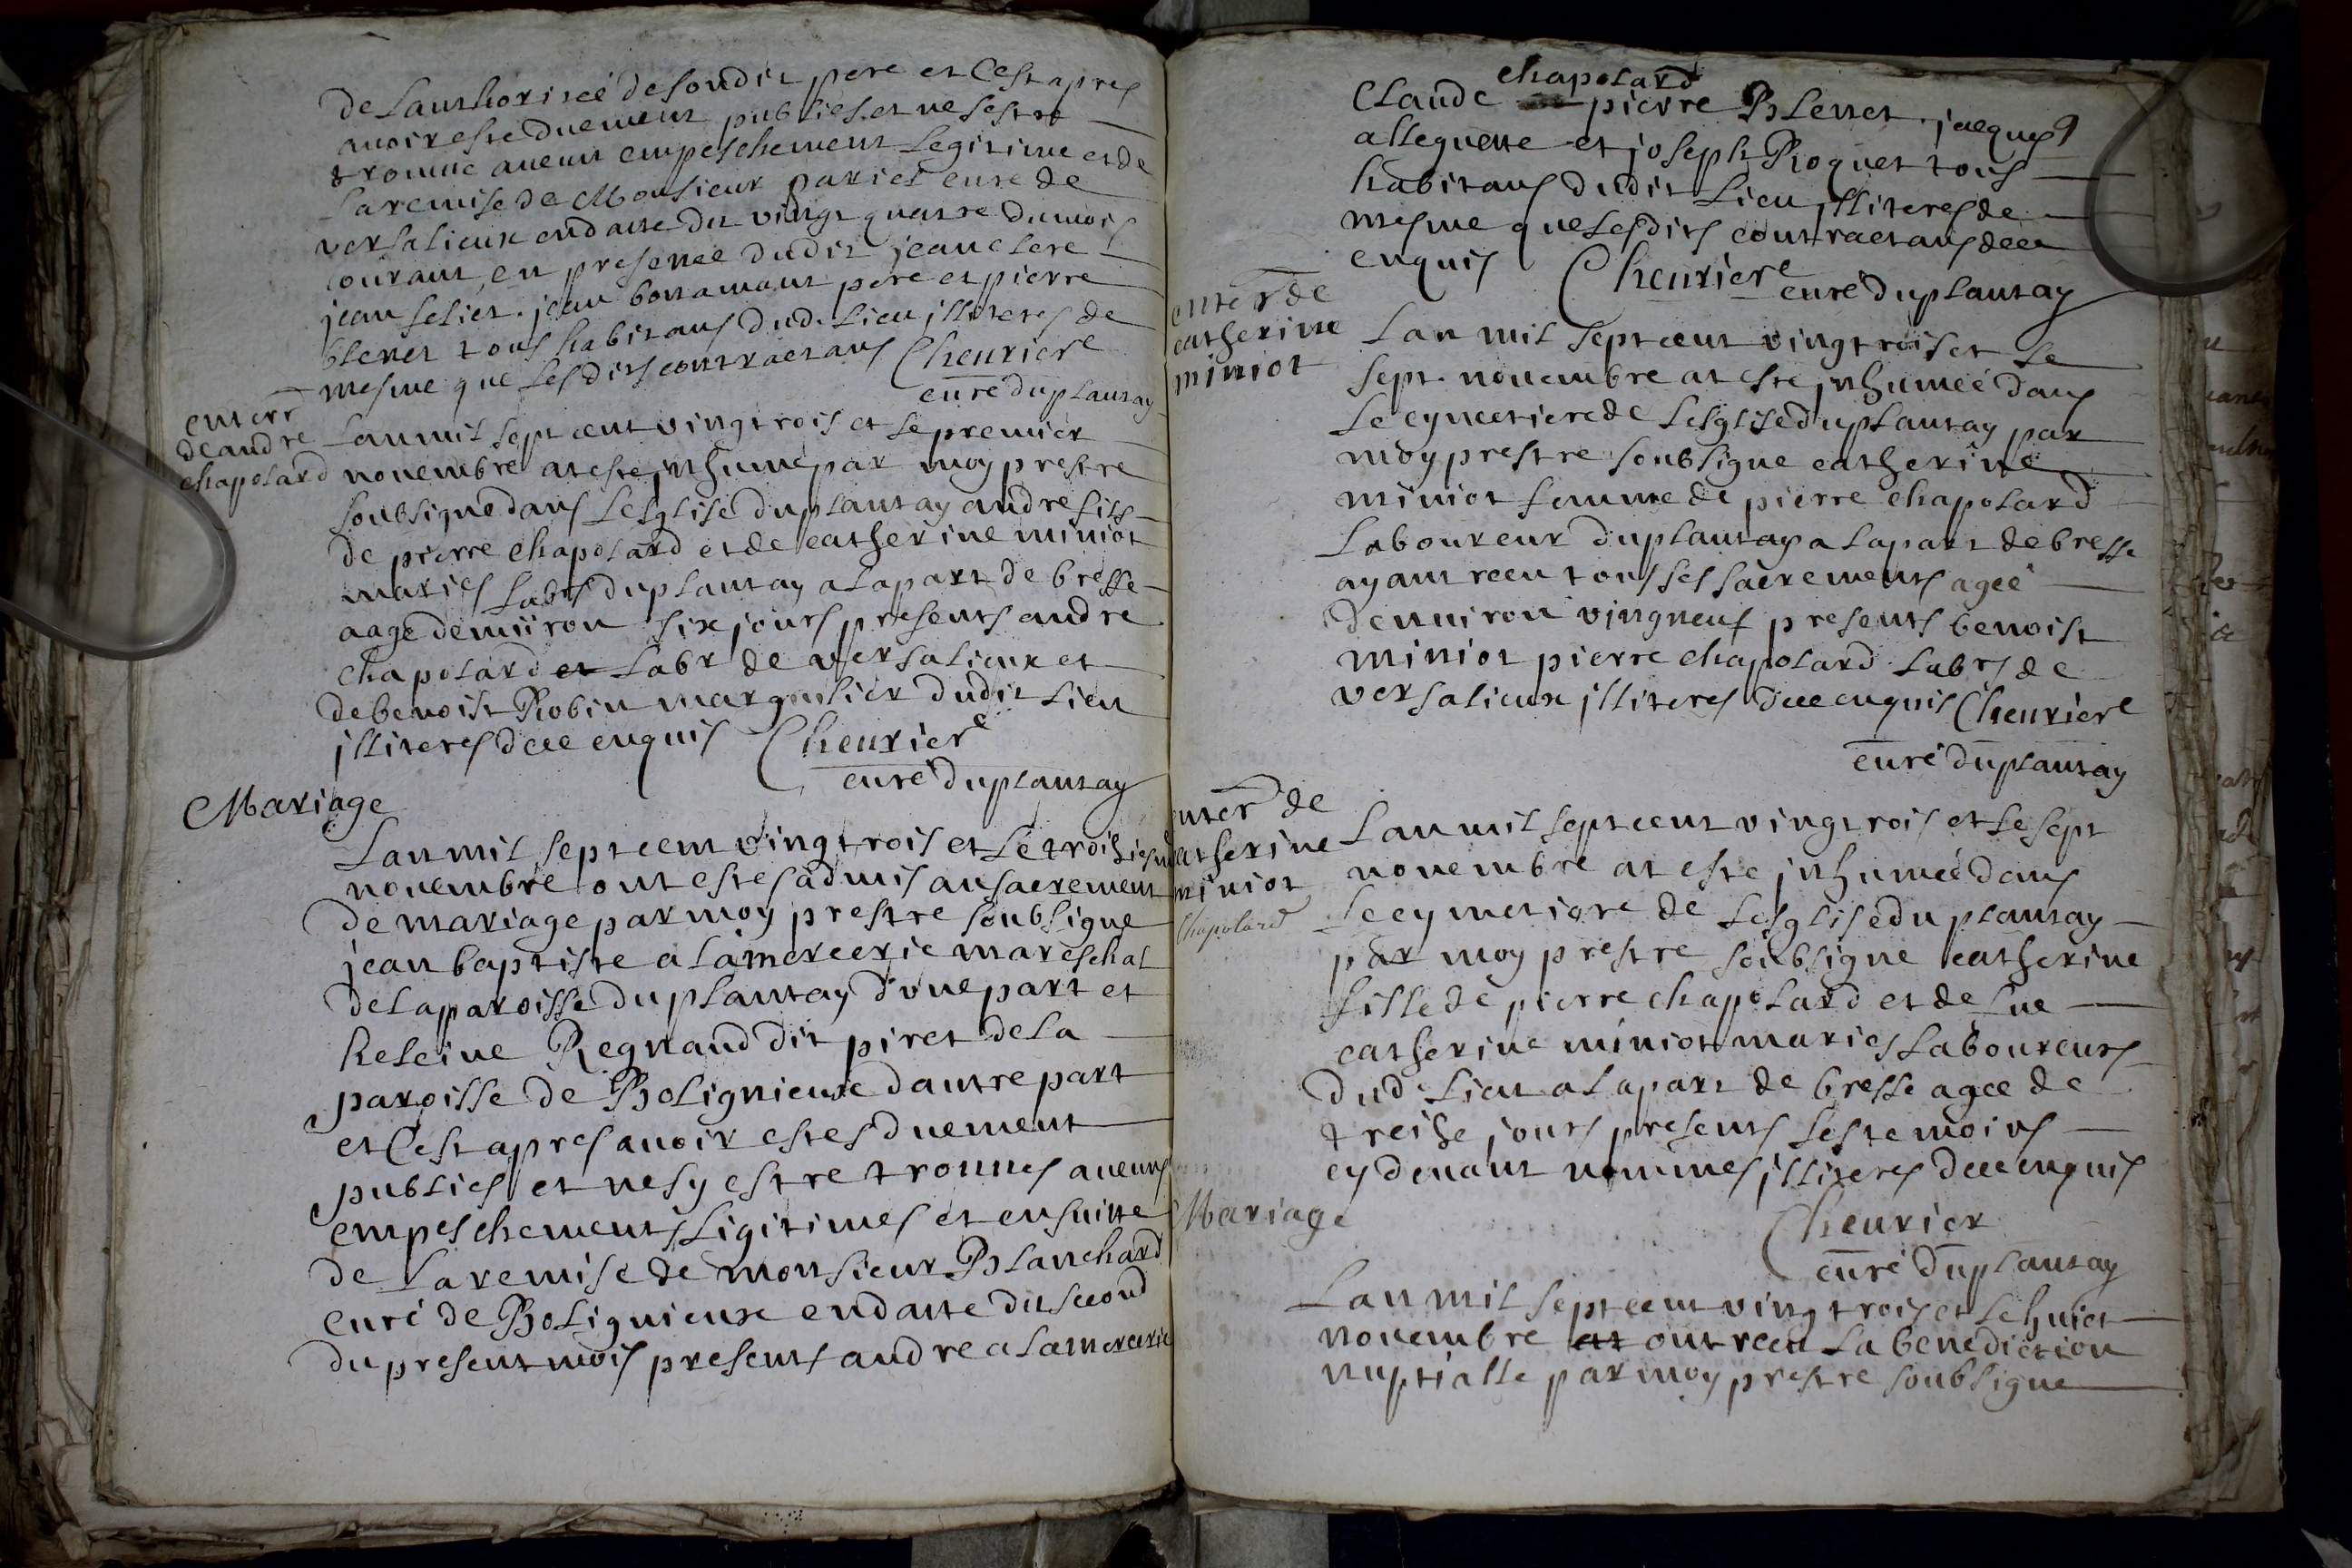 de lauthoriseé desondit pere et Cest apres
auoir esté duement publies et ne sestre
trouue aucun empeschement legitime et de
laremise de Monsieur paries curé de
versalieux en datte du vingt quatre du mois
courant, en presence dudit jean clerc
jean selier. jean bonamant pere et pierre
blenet tous habitans dud. lieu jlliteres de
mesme que lesdits contractans Cheuriere
curé du plantay
enterr
de andre
chapolard
Lan mil sept cent vingtrois et le premier
nouembre at este jnhume par moy prestre
soubsigne dans lesglise du plantay andre fils
de pierre chapolard et de catherine miniot
maries labrs du plantay a la part de bresse
aage denuiron six jours presents andre
chapolard et labr de versalieux et
de benoist Robin marguilier dudit lieu
jlliteres dece enquis Cheuriere
curé du plantay
Mariage
Lan mil sept cent vingtrois et le troisiesme
nouembre ont estes admis au sacrement
de mariage par moy prestre soubsigne
jean baptiste alamercerie mareschal
de la paroisse du plantay dune part et
heleine Regnaud dit piret de la
paroisse de Bolignieux dautre part
et Cest apres auoir estes duement
publies et ne sy estre trouues aucuns
empeschements ligitimes et ensuitte
de la remise de monsieur Blanchard
curé de Bolignieux en datte du second
du present mois presents andre alamercerie
chapolard
Claude pierre Blenet. jacques
alleguette et joseph Roquet tous
habitans dudit lieu jlliteres de
mesme que lesdits contractans dece
enquis Cheuriere
curé du plantay
enterr de
catherine
miniot
Lan mil sept cent vingtrois et le
sept. nouembre at este jnhumeé dans
le cymetiere de lesglise du plantay par
moy prestre soubsigne catherine
miniot femme de pierre chapolard
Laboureur du plantay a la part de bresse
ayant receu tous ses sacrements ageé
denuiron vingneuf presents benoist
miniot pierre chapolard labrs de
versalieux jlliteres dece enquis Cheuriere
curé du plantay
enter de
catherine
miniot
Chapolard
Lan mil sept cent vingtrois et le sept
nouembre at este jnhumeé dans
le cymetiere de lesglise du plantay
par moy prestre soubsigne catherine
fille de pierre chapolard et de fue
catherine miniot maries laboureurs
dud lieu a la part de bresse agee de
treize jours presents les temoins
cy deuant nommes jlliteres dece enquis
Cheurier
curé du plantay
Mariage
Lan mil sept cent vingtrois et le huict
nouembre at ont receu la benediction
nuptialle par moy prestre soubsigne